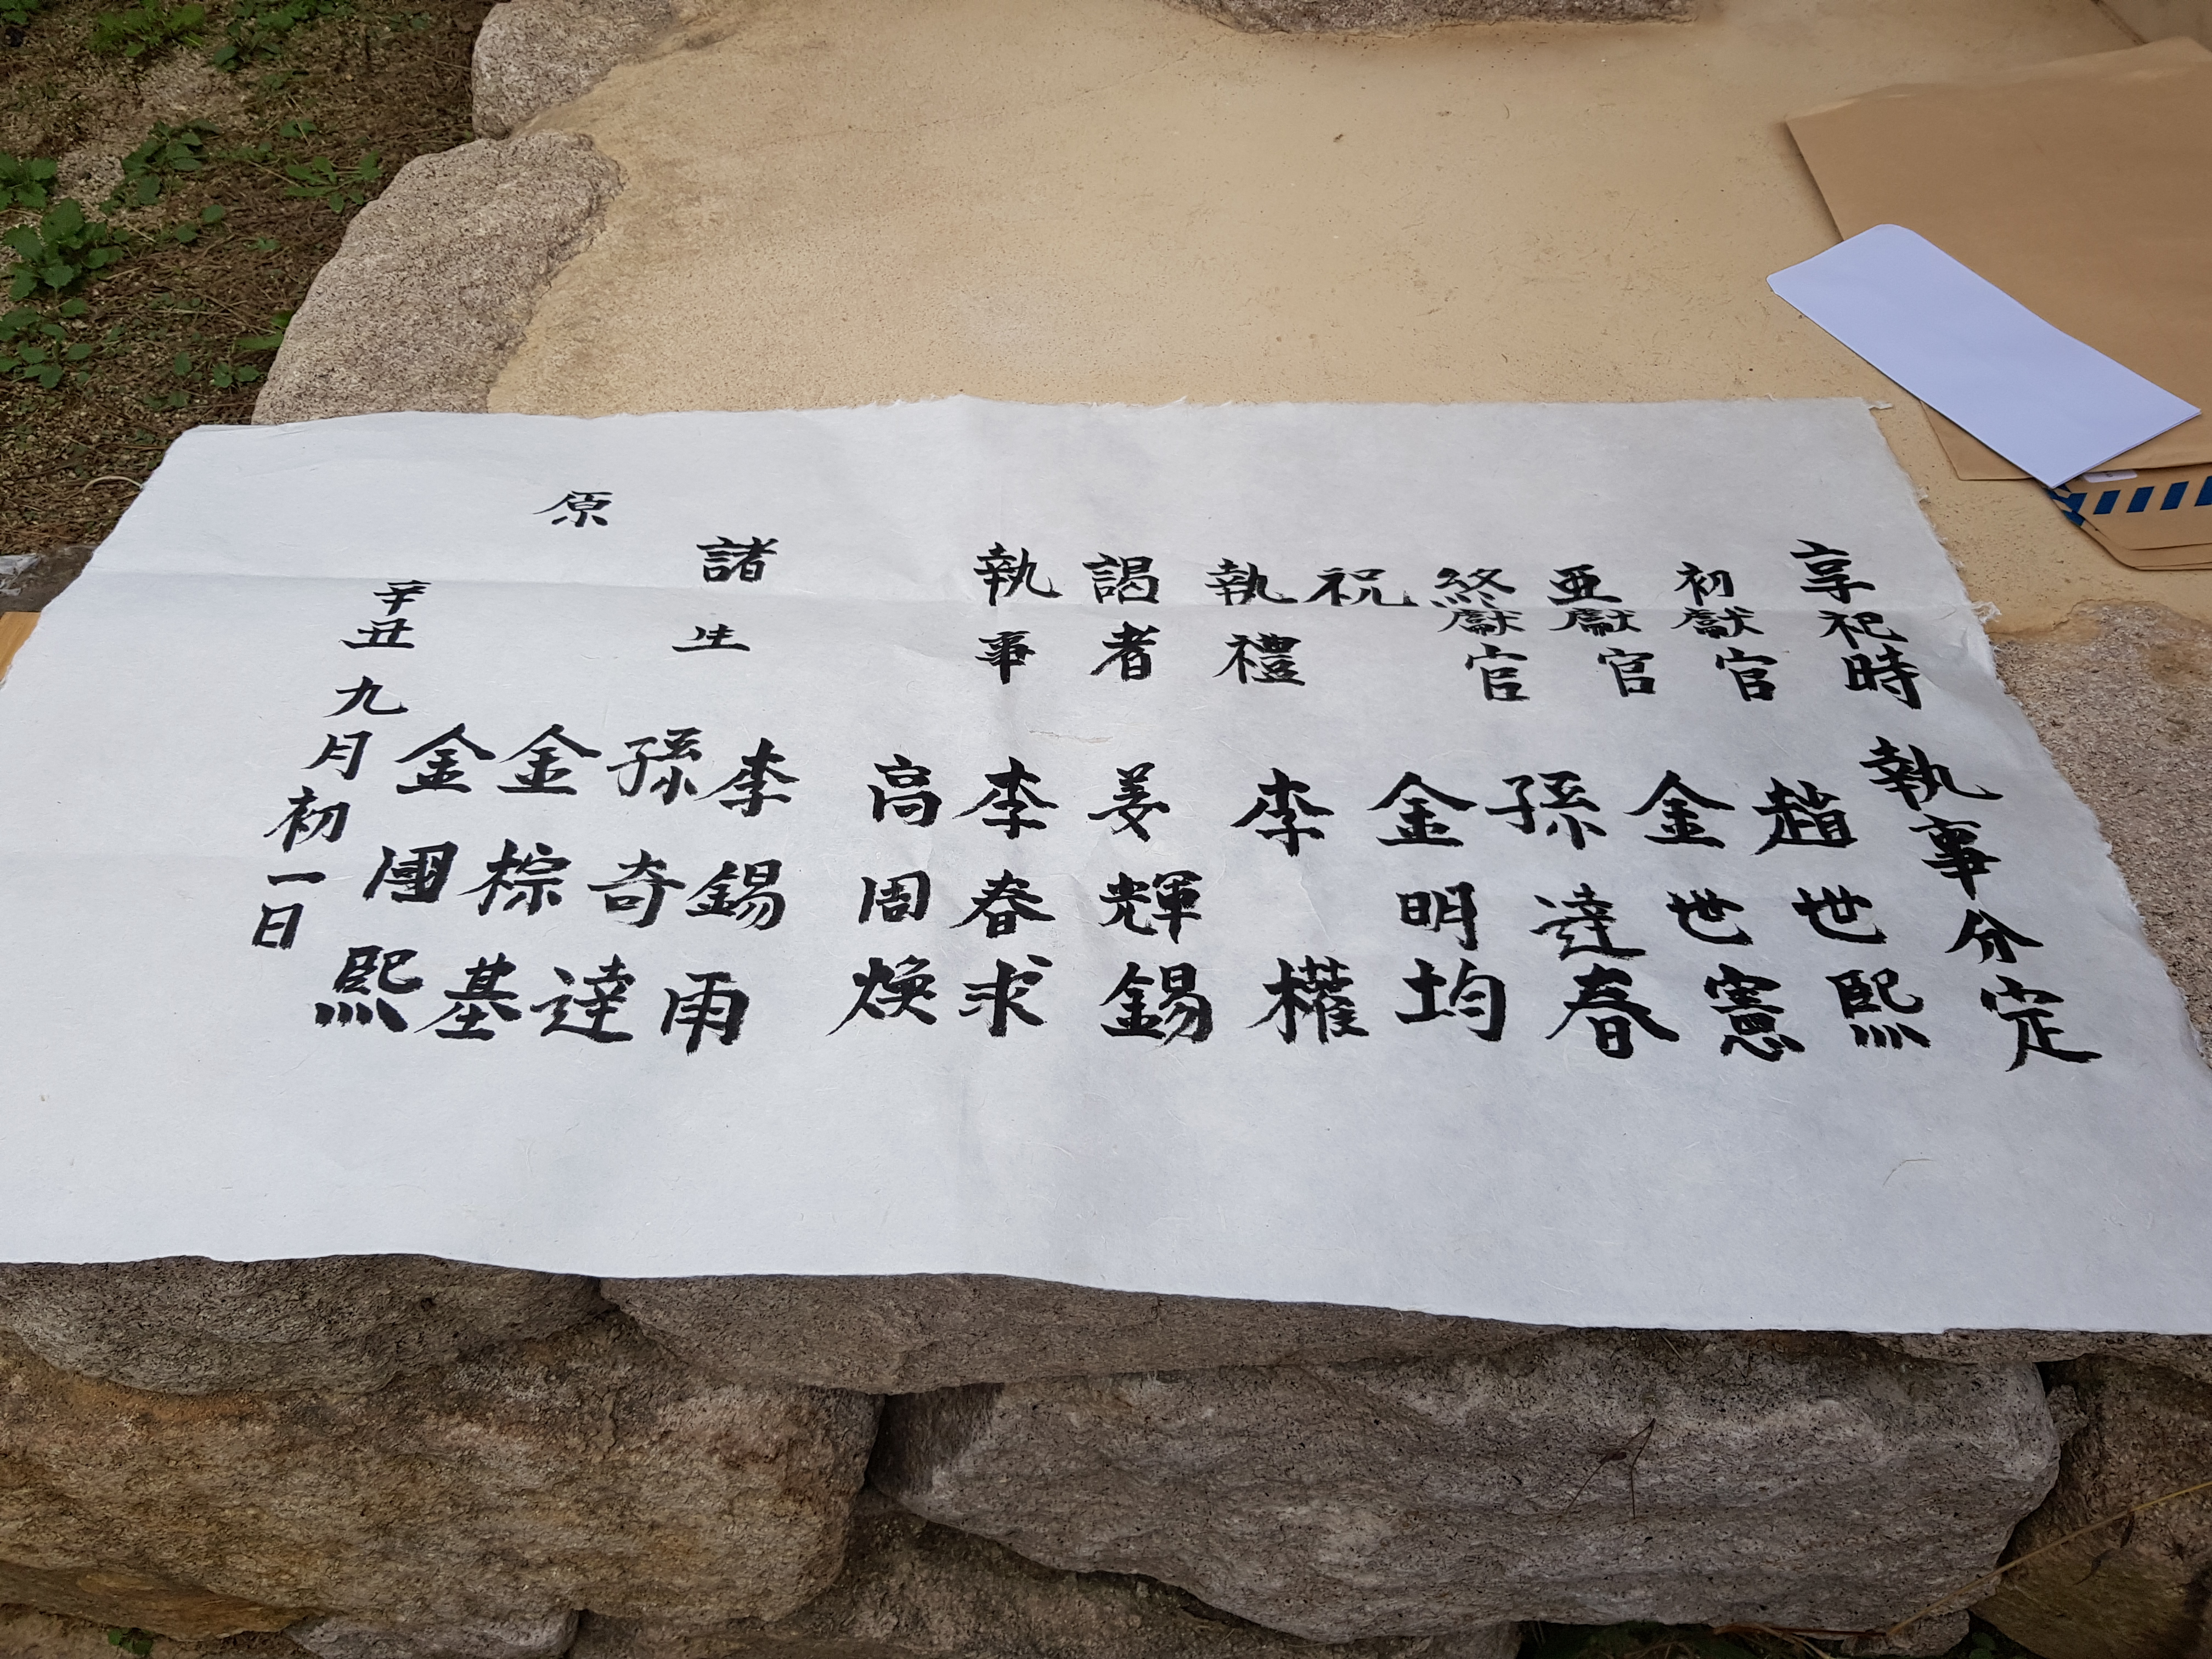 享祀時執事分定
初獻官 趙世熙
亞獻官 金世憲
終獻官 孫達春
祝 金明均
執禮 李權
謁者 姜輝錫
執事 李春求
高周煥
諸生 李錫雨
孫奇達
原 金棕基
金國熙
辛丑九月初一日